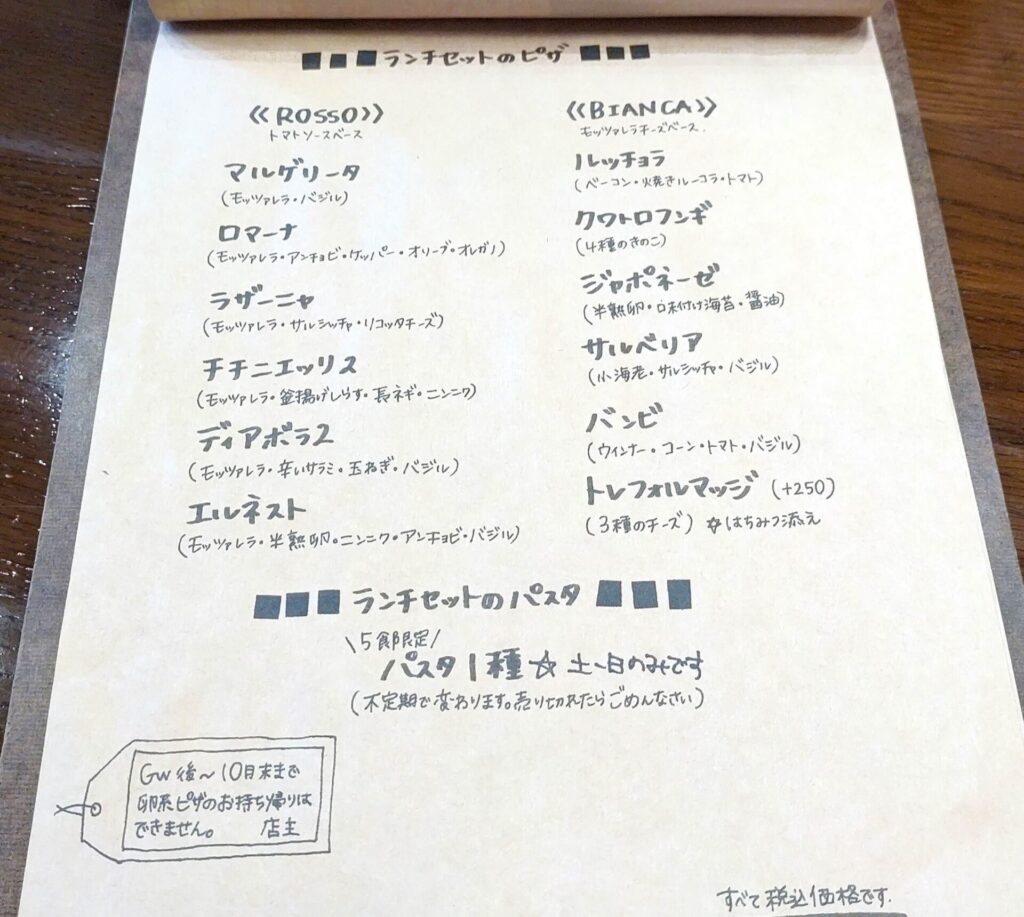 ■■■ランチセットのピザ■■■
《ROSSO》
トマトソースベース
マルゲリータ
(モッツァレラ・バジル)
ロマーナ
(モッツァレラ・アンチョビ・ケッパー・オリーブ・オレガノ)
ラザーニャ
(モッツァレラ・サルシッチャ・リコッタチーズ)
チチニエッリス
(モッツァレラ・釜揚げしらす・長ネギ・ニンニク)
ディアボラ2
(モッツァレラ・辛いサラミ・玉ねぎ・バジル)
エルネスト
(モッツァレラ・半熟卵。ニンニク・アンチョビ・バジル)
《BIANCA》
モッツァレラチーズベース.
ルッチョラ
(ベーコン・焼きルーコラ・トマト)
クワトロフンギ
(4種のきのこ)
ジャポネーゼ
(半熟卵・味付け海苔・醤油)
サルベリア
(小海老・サルシッチャ・バジル)
バンビ
(ウィンナー・コーン・トマト・バジル)
トレフォルマッジ (+250)
(3種のチーズ) ☆はちみつ添え
■■■ランチセットのパスタ■■■
\5食限定/
パスタ1種☆土〜日のみです
(不定期で変わります。売り切れたらごめんなさい)
GW後〜10月末まで
卵系ピザのお持ち帰りは
できません。 店主
すべて税込価格です.